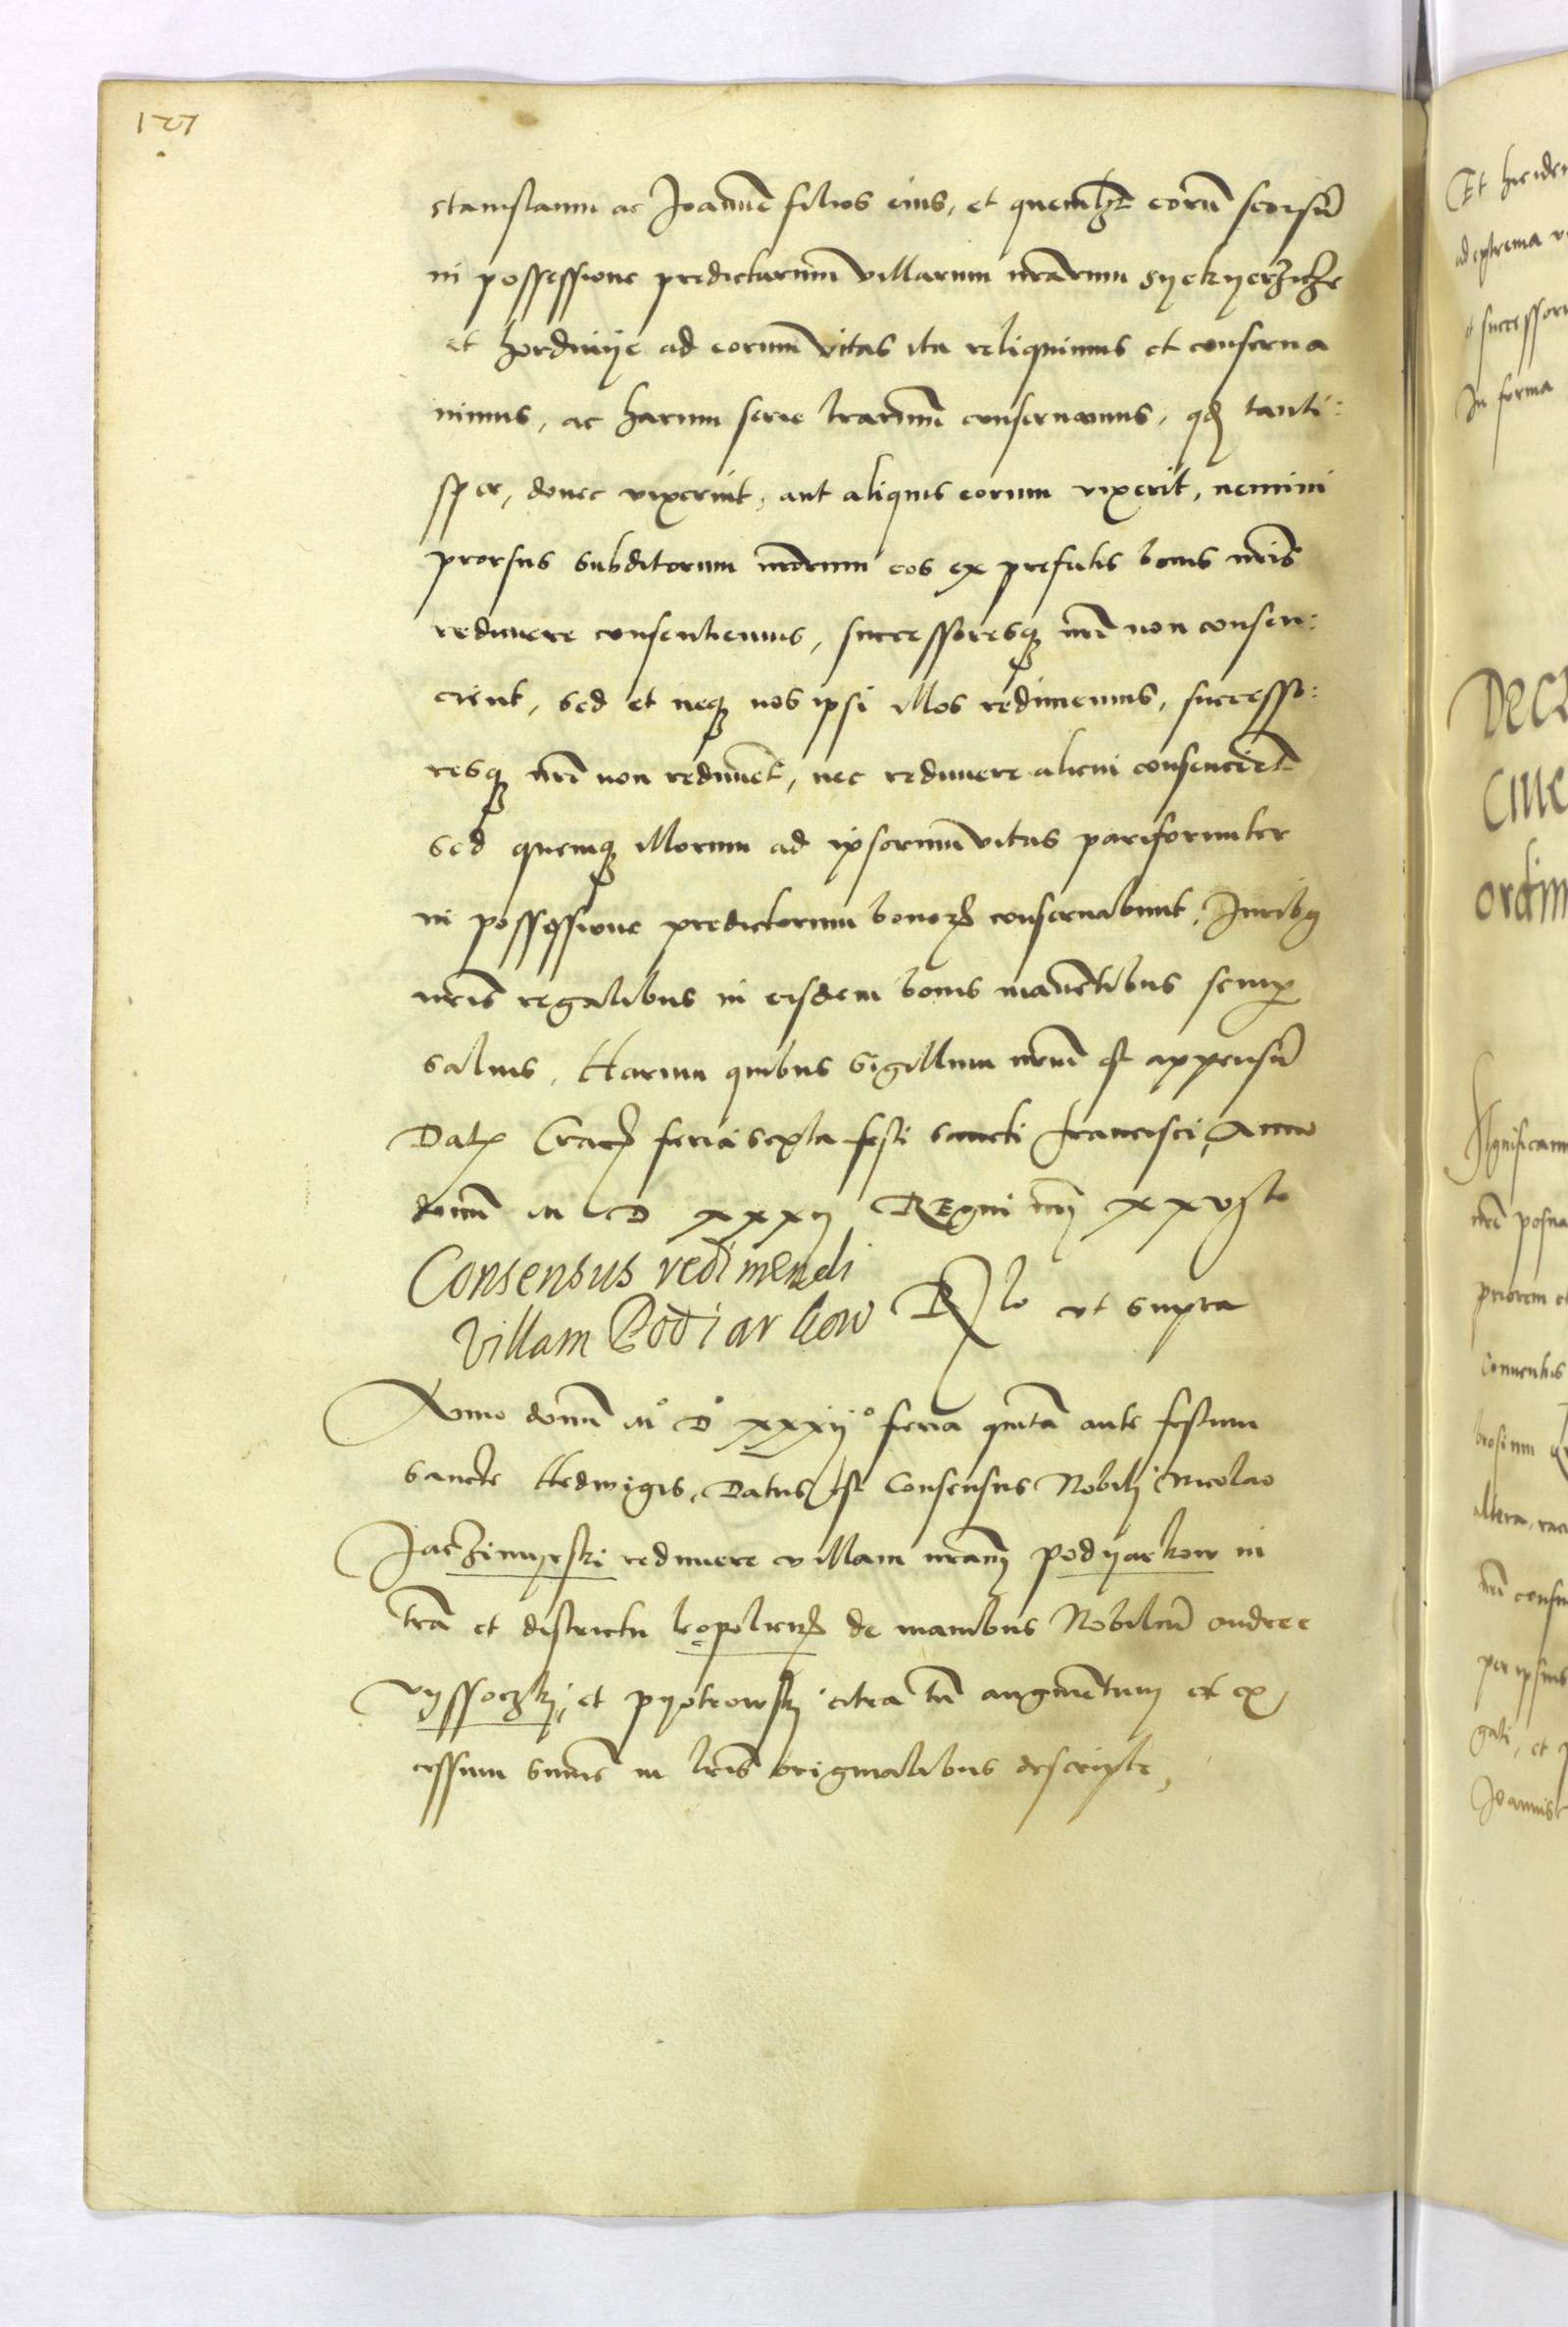 127
stanislaum ac Joannē filios eius, et quemlꝫt eorū seorsū
in possessione predictarum villarum nr̄arum syekyerzicze
et hordinye ad eorum vitas ita reliquimus et conserua
uimus, ac harum serie lrārum conseruamus, qd tanti:
sper, donec vixerint, aut aliquis eorum vixerit, nemini
prorsus subditorum nr̄orum eos ex prefatis bonis nr̄is
redimere consentiemus, successoresqꝫ nr̄i non consen:
cient, sed et neqꝫ nos ipsi illos redimemus, successo:
resqꝫ nr̄i non rediment, nec redimere alicui consencient
sed quemqꝫ illorum ad ipsorum vitas pariformiter
in possessione predictorum bonoꝝ conseruabunt, Juribꝫ
nr̄is regalibus in eisdem bonis manētibus semp
saluis, Harum quibus sigillum nr̄um est appensū
Datꝭ Cracꝭ feria sexta festi sancti francisci, Anno
domī M D XXXII Regni nr̄i XXVIto
Consensus redimendi
villam Podiarkow Rlo vt supra
Anno domī M° D° XXXII° feria quīta ante festum
sancte Hedwigis, Datus est Consensus Nobili Nicolao
Jaczimyrski redimere villam nr̄am podyarkow in
trā et districtu leopolienꝭ de manibus Nobiliū Andree
vyssoczki, et pyotrowski citra tn̄ augmētum et ex
cessum sum̄e in lrīs originalibus descripte,
Et
ad extrema
et successor
In forma
ordin
significam
nr̄i posna
priorem et
Conuentus
altera,
per ipsius
et
Joannis